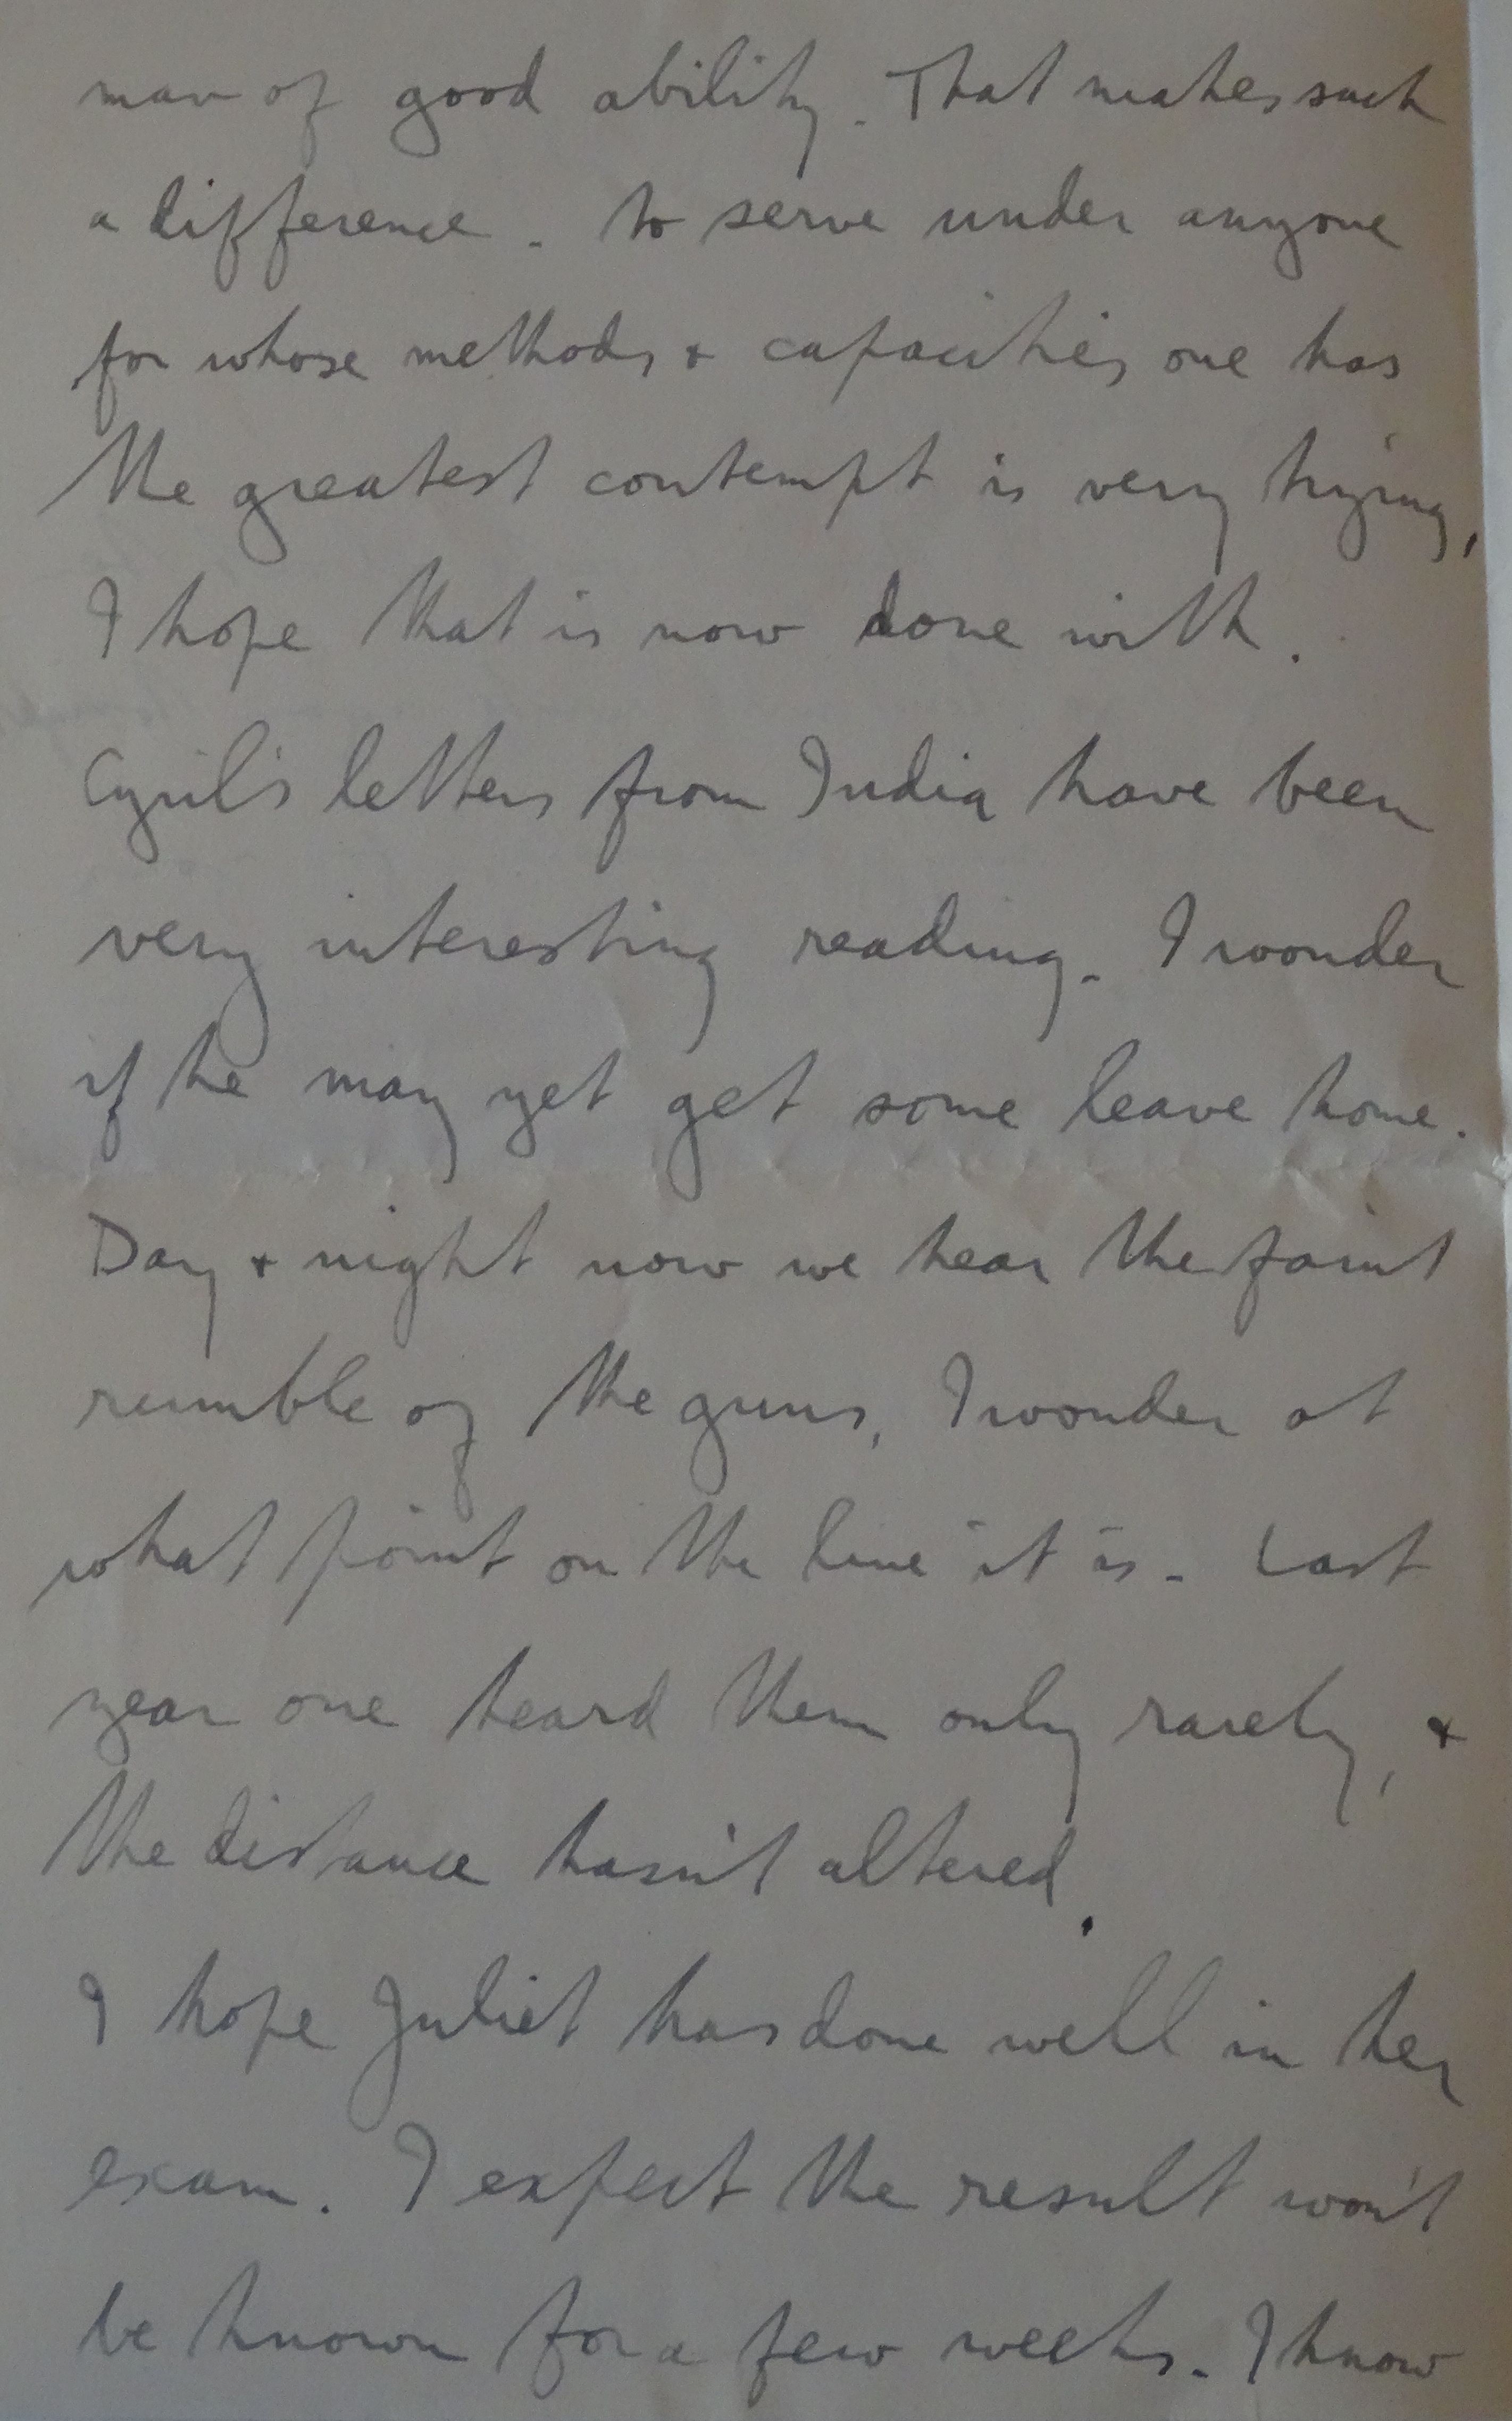 man of good ability. That makes such
a difference. to serve under anyone
for whose methods & capacities one has
the greatest contempt is very trying,
I hope that is now done with.
Cyril's letters from India have been
very interesting reading. I wonder
if he may yet get some leave home.
Day & night now we hear the faint
rumble of the guns, I wonder at
what point on the line it is. Last
year one heard them only rarely, &
the distance hasn't altered.
I hope Juliet has done well in her
exam. I expect the result won't
be known for a few weeks. I know